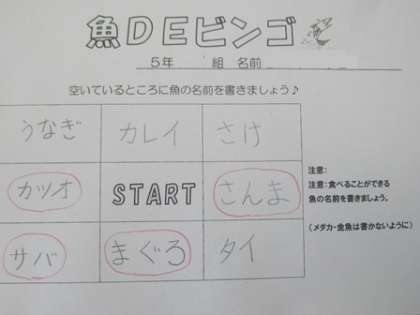 魚DEビンゴ
5年 組 名前
空いているところに魚の名前を書きましょう♪
うなぎ カレイ さけ
カツオ START さんま
サバ まぐろ タイ
注意:
注意:食べることができる
魚の名前を書きましょう。
(メダカ・金魚は書かないように)